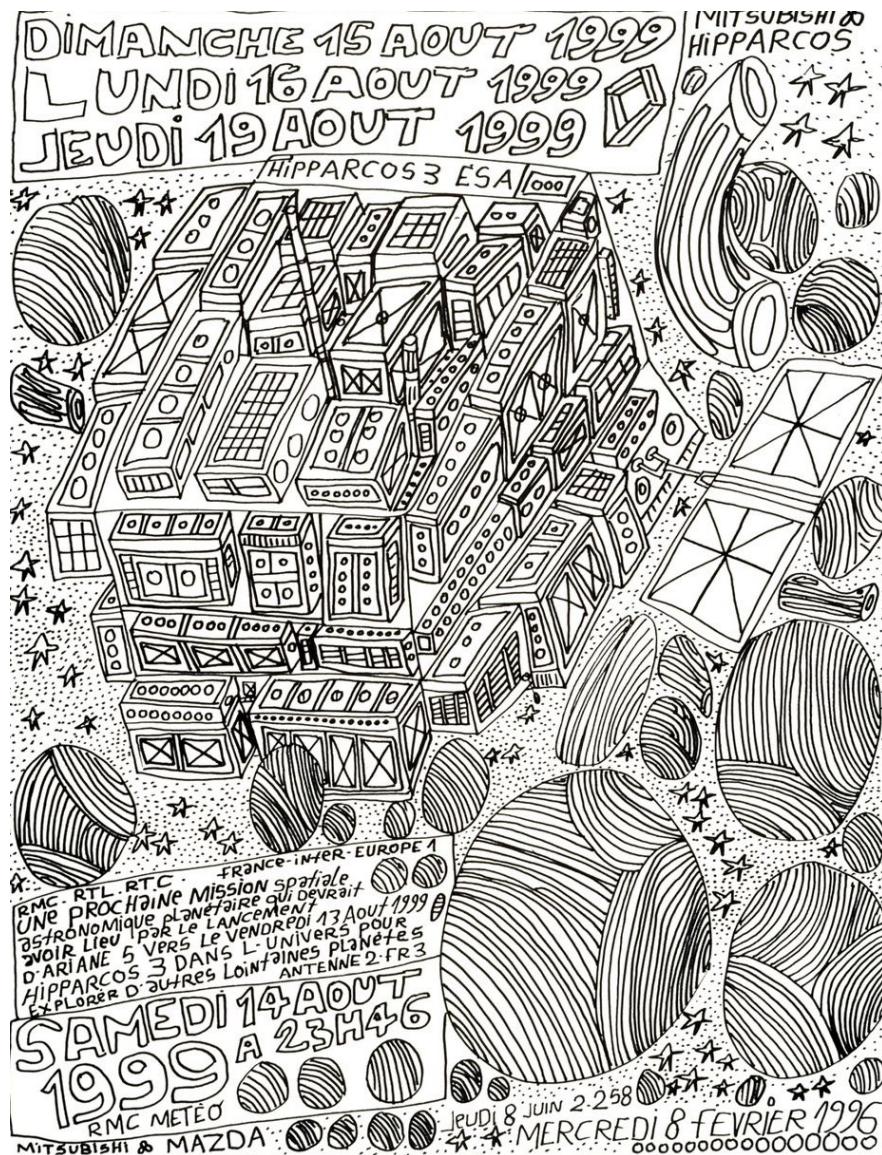 DIMANCHE 15 AOUT 1999
LUNDI 16 AOUT 1999
JEUDI 19 AOUT 1999
MITSUBISHI &
HIPPARCOS
HIPPARCOS 3 ESA
RMC - RTL - RTC - FRANCE-INTER-EUROPE 1
UNE PROCHAINE MISSION SPATIALE
ASTRONOMIQUE PLANÉTAIRE QUI DEVRAIT
AVOIR LIEU PAR LE LANCEMENT
D'ARIANE 5 VERS LE VENDREDI 13 AOUT 1999
HIPPARCOS 3 DANS L'UNIVERS POUR
EXPLORER D'AUTRES LOINTAINES PLANÈTES
ANTENNE 2-FR3
SAMEDI 14 AOUT
1999 A 23H46
RMC METÉO
MITSUBISHI & MAZDA
JEUDI 8 JUIN 2-258
MERCREDI 8 FÉVRIER 1996